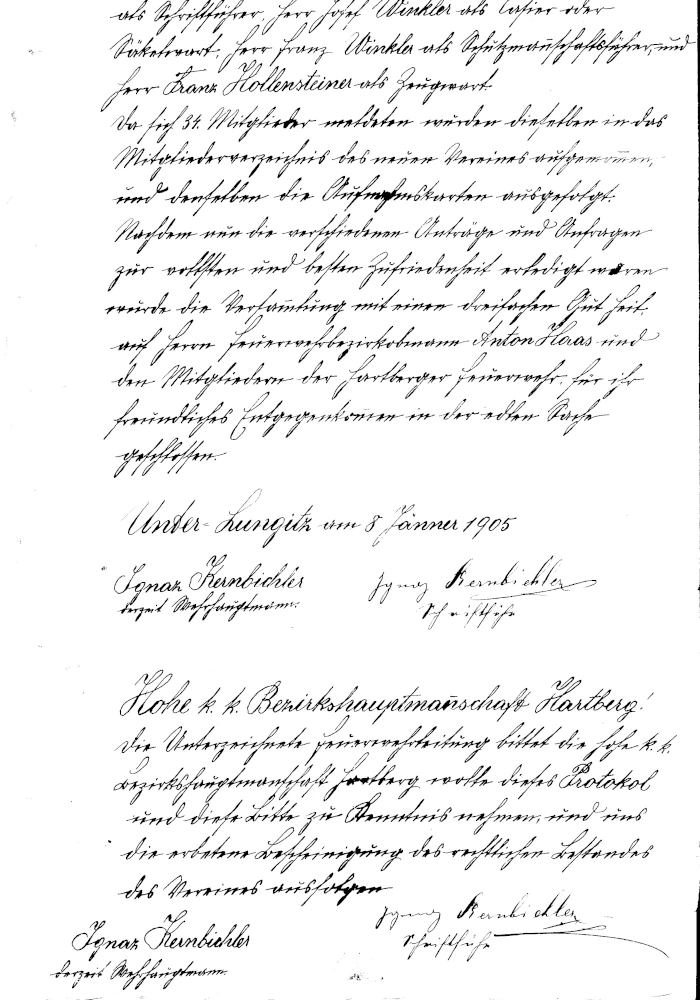 als Schriftführer, Herr Josef Winkler als Casier oder
Säkelwart, Herr Franz Winkler als Schutzmanschaftsführer, und
Herr Franz Hollensteiner als Zeugwart.
Da sich 34. Mitglieder meldeten wurden dieselben in das
Mitgliederverzeichnis des neuen Vereines aufgenommen,
und denselben die Aufnahmskarten ausgefolgt.
Nachdem nun die verschiedenen Anträge und Anfragen
zur vollsten und besten Zufriedenheit erledigt waren
wurde die Versamlung mit einen dreifachen Gut Heil
auf Herrn Feuerwehrbezirksobmann Anton Haas und
den Mitgliedern der Hartberger Feuerwehr, für ihr
freundliches Entgegenkomen in der edlen Sache
geschlossen.
Unter-Lungitz am 8 Jänner 1905
Ignaz Kernbichler Ignaz Kernbichler
derzeit Wehrhauptmann. Schriftfüh
Hohe k. k. Bezirkshauptmanschaft Hartberg!
Die Unterzeichnete Feuerwehrleitung bittet die hohe k. k.
Bezirkshauptmanschaft Hartberg wolle dieses Protokol
und diese Bitte zu Kenntnis nehmen, und uns
die erbetene Bescheinigung des rechtlichen Bestandes
des Vereines ausfolgen
Ignaz Kernbichler Ignaz Kernbichler
derzeit Wehrhauptmann. Schriftfüh